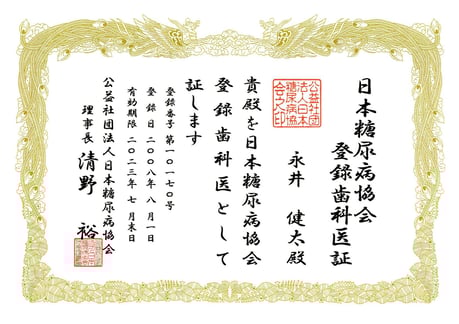 日本糖尿病協会
登録歯科医証
永井 健太殿
公益社団
法人日本
糖尿病協
会之印
貴殿を日本糖尿病協会
登録歯科医として
証します
登録番号 第一〇一七〇号
登録日 二〇〇八年 八月一日
有効期限 二〇二三年 七月末日
公益社団法人日本糖尿病協会
理事長 清野 裕